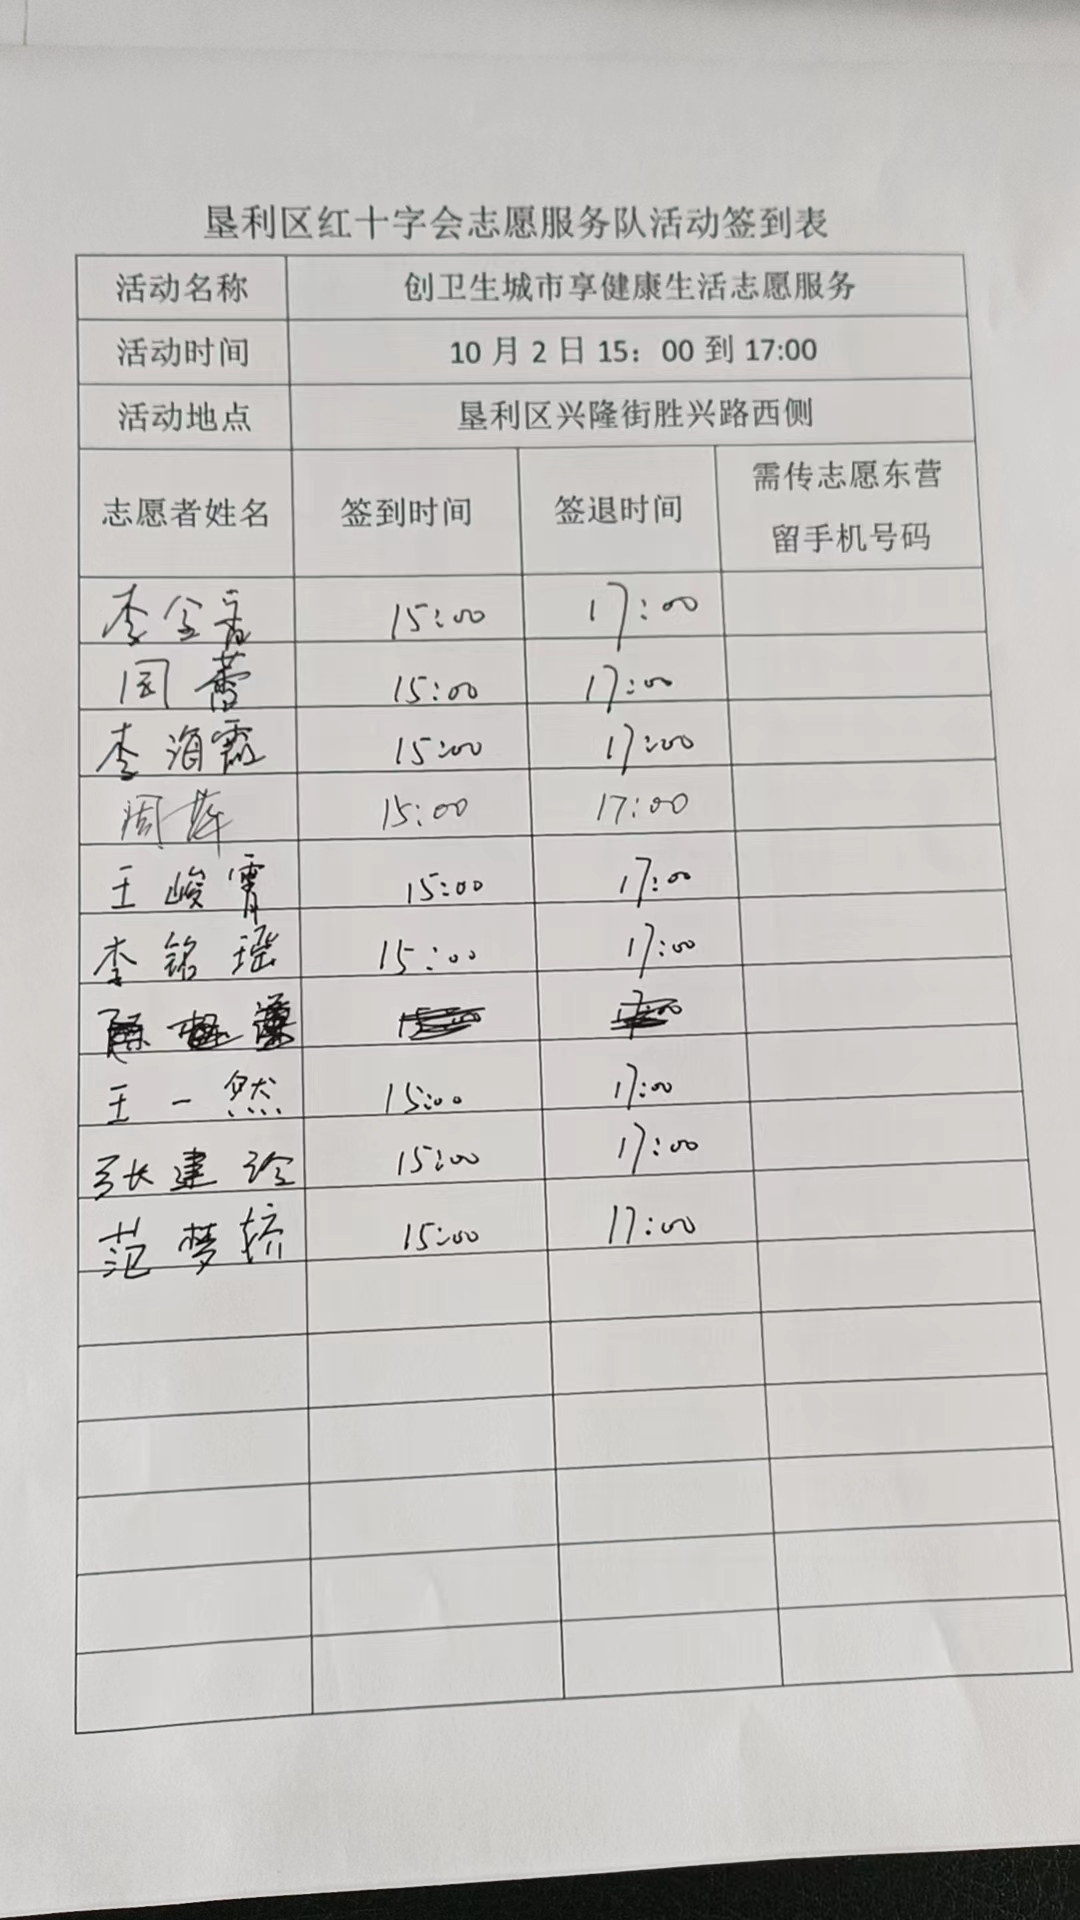 垦利区红十字会志愿服务队活动签到表
活动名称 创卫生城市享健康生活志愿服务
活动时间 10 月 2 日 15：00 到 17:00
活动地点 垦利区兴隆街胜兴路西侧
志愿者姓名 签到时间 签退时间 需传志愿东营
留手机号码
李 15:00 17:00
周蕾 15:00 17:00
李海霞 15:00 17:00
周萍 15:00 17:00
王峻霄 15:00 17:00
李铭瑶 15:00 17:00
王一然 15:00 17:00
张建玲 15:00 17:00
范梦轿 15:00 17:00